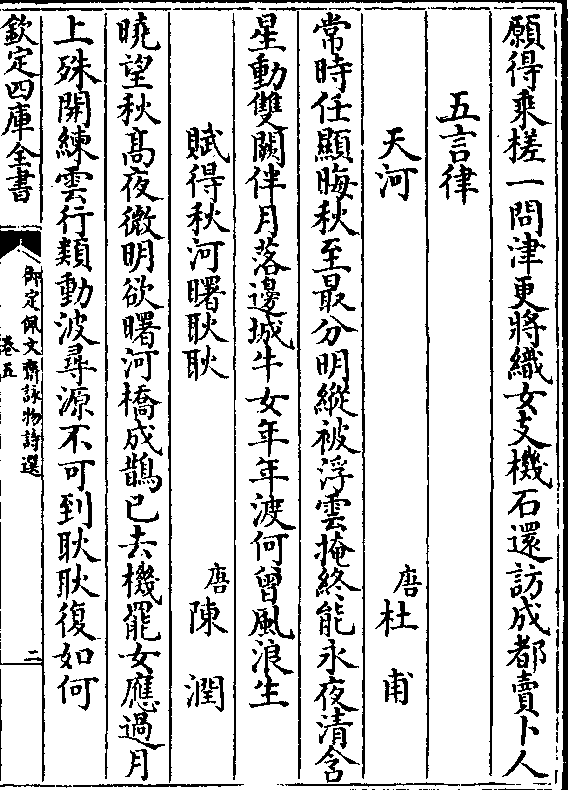 願得乘槎一問津更將織女支機石還訪成都賣卜人
五言律
天河　唐杜甫
常時任顯晦秋至最分明縱被浮雲掩終能永夜清含
星動雙闕伴月落邊城牛女年年渡何曾風浪生
賦得秋河曙耿耿　唐陳潤
曉望秋高夜微明欲曙河橋成鵲已去機罷女應過月
上殊開練雲行類動波尋源不可到耿耿復如何
欽定四庫全書
御定佩文齋詠物詩選
卷五
二